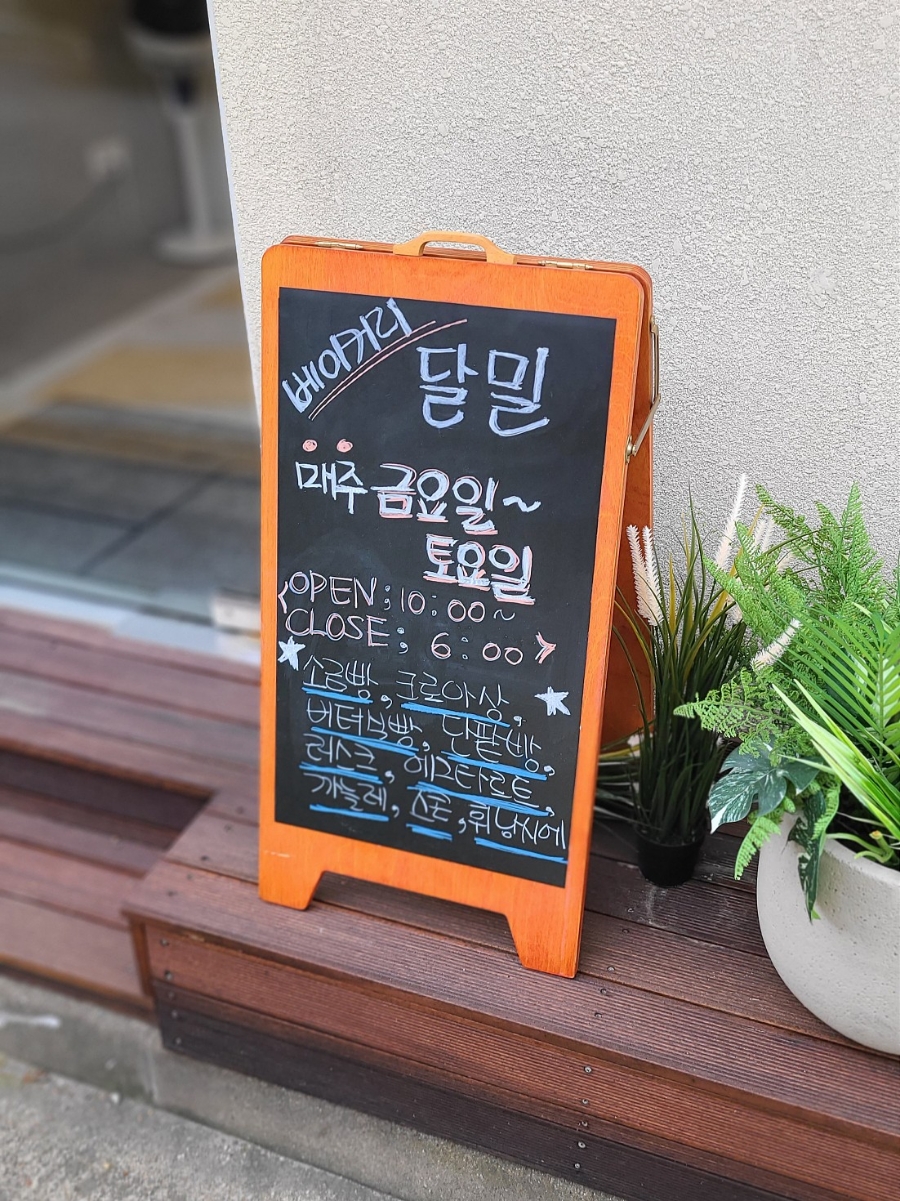 베이커리
달밀
매주 금요일~
토요일
<OPEN ; 10 : 00~
CLOSE ; 6 : 00>
소금빵, 크로와상,
버터식빵, 단팥빵,
러스크, 에그타르트,
까눌레, 스콘, 휘낭시에